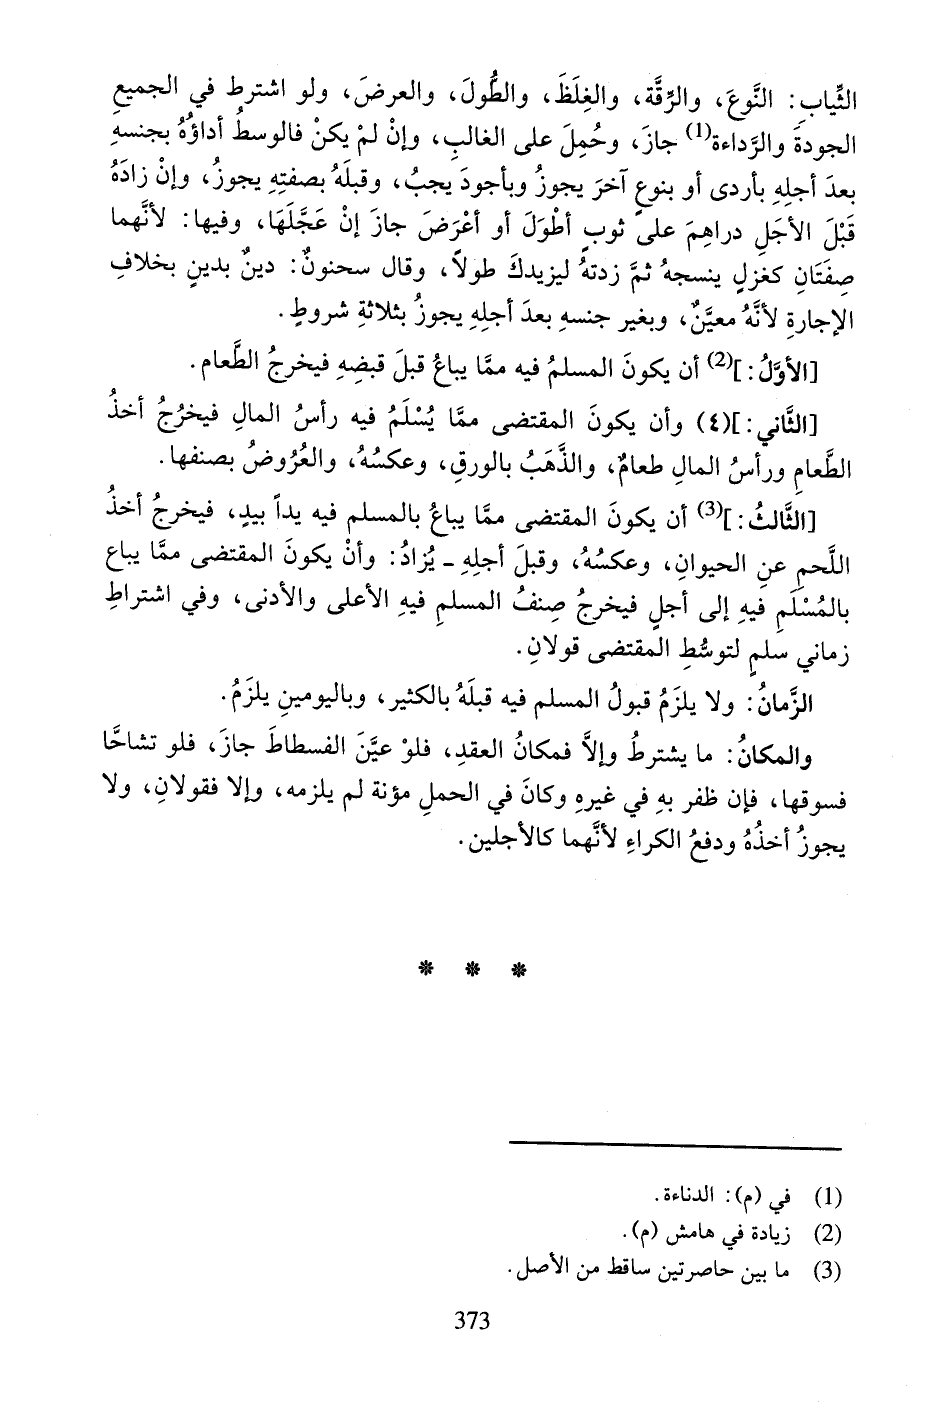 الثِّيابِ: النَّوعَ، والرِّقَّةَ، والغِلَظَ، والطُّولَ، والعرضَ، ولو اشترط في الجميعِ
الجودةَ والرَّداءة(1) جازَ، وحُمِلَ على الغالبِ، وإنْ لمْ يكنْ فالوسطُ أداؤُهُ بجنسهِ
بعدَ أجلِهِ بأردى أو بنوعٍ آخرَ يجوزُ وبأجودَ يجبُ، وقبلَهُ بصفتِهِ يجوزُ، وإنْ زادَهُ
قَبْلَ الأجَلِ دراهِمَ على ثوبٍ أطْوَلَ أو أعْرَضَ جازَ إنْ عَجَّلَهَا، وفيها: لأنَّهما
صِفَتَانِ كغزلٍ ينسجهُ ثمَّ زدتهُ ليزيدكَ طولاً، وقال سحنونٌ: دينٌ بدينٍ بخلافِ
الإجارةِ لأنَّهُ معيَّنٌ، وبغير جنسهِ بعدَ أجلِهِ يجوزُ بثلاثةِ شروطٍ.
[الأوَّلُ:](2) أن يكونَ المسلمُ فيه ممَّا يباعُ قبلَ قبضِهِ فيخرجُ الطَّعام.
[الثَّاني:](٤) وأن يكونَ المقتضى ممَّا يُسْلَمُ فيه رأسُ المالِ فيخرُجُ أخذُ
الطَّعامِ ورأسُ المالِ طعامٌ، والذَّهَبُ بالورقِ، وعكسُهُ، والعُرُوضُ بصنفها.
[الثَّالثُ:](3) أن يكونَ المقتضى ممَّا يباعُ بالمسلم فيه يداً بيدٍ، فيخرجُ أخذُ
اللَّحمِ عنِ الحيوانِ، وعكسُهُ، وقبلَ أجلِهِ ـ يُزادُ: وأنْ يكونَ المقتضى ممَّا يباع
بالمُسْلَمِ فيهِ إلى أجلٍ فيخرجُ صِنفُ المسلمِ فيهِ الأعلى والأدنى، وفي اشتراطِ
زماني سلمٍ لتوسُّطِ المقتضى قولانِ.
الزَّمانُ: ولا يلزَمُ قبولُ المسلم فيه قبلَهُ بالكثير، وباليومينِ يلزَمُ.
والمكانُ: ما يشترطُ وإلاَّ فمكانُ العقدِ، فلوْ عيَّنَ الفسطاطَ جازَ، فلو تشاحَّا
فسوقها، فإن ظفر بهِ في غيرهِ وكانَ في الحملِ مؤنة لم يلزمه، وإلا فقولانِ، ولا
يجوزُ أخذُهُ ودفعُ الكراءِ لأنَّهما كالأجلين.
* * *
(1) في (م): الدناءة.
(2) زيادة في هامش (م).
(3) ما بين حاصرتين ساقط من الأصل.
373